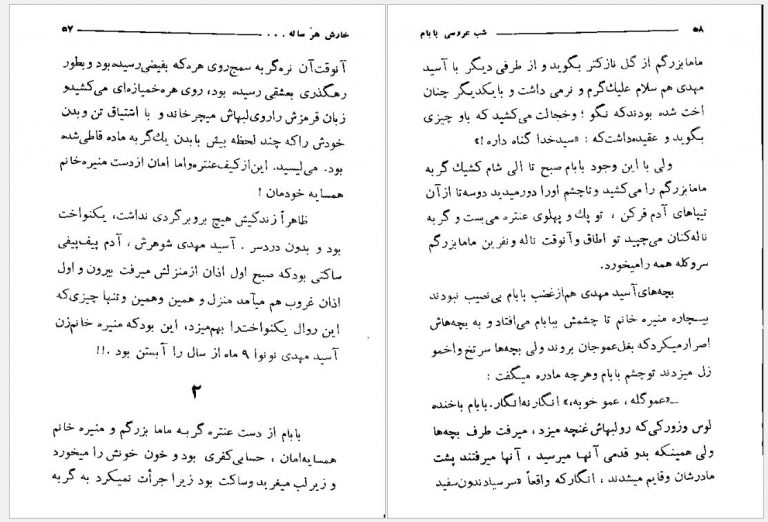 خارش هر ساله . . . . ۵۷
آنوقت آن نره‌گربه سمج روی هره که بفیضی رسیده بود و بطور
رهگذری بعشقی رسیده بود، روی هره خمیازه‌ای می‌کشید و
زبان قرمزش را روی لبهاش میچرخاند و با اشتیاق تن و بدن
خودش را که چند لحظه بیش با بدن یك گربه ماده قاطی شده
بود. می‌لیسید. این از کیف عنتره و اما امان از دست منیره خانم
همسایه خودمان !
ظاهراً زندگیش هیچ بروبرگردی نداشت، یکنواخت
بود و بدون دردسر . آسید مهدی شوهرش ، آدم پیف‌پیفی
ساکتی بود که صبح اول اذان از منزلش میرفت بیرون و اول
اذان غروب هم میآمد منزل و همین و همین و تنها چیزی که
این روال یکنواخت را بهم میزد، این بود که منیره خانم زن
آسید مهدی نونوا ۹ ماه از سال را آبستن بود .!!
۲
بابام از دست عنتره گربه ماما بزرگم و منیره خانم
همسایه‌امان ، حسابی کفری بود و خون خونش را میخورد
و زیر لب میغرید و ساکت بود زیرا جرأت نمیکرد به گربه
۵۸ شب عروسی بابام
ماما بزرگم از گل نازکتر بگوید و از طرفی دیگر با آسید
مهدی هم سلام علیك گرم و نرمی داشت و با یکدیگر چنان
اخت شده بودند که نگو ؛ و خجالت می‌کشید که باو چیزی
بگوید و عقیده داشت که : «سید خدا گناه داره !»
ولی با این وجود بابام صبح تا الی شام کشیك گربه
ماما بزرگم را می‌کشید و تا چشم اورا دور میدید دوسه تا از آن
تیپاهای آدم فرکن ، تو پك و پهلوی عنتره می‌بست و گربه
ناله‌کنان می‌چپید تو اطاق و آنوقت ناله و نفرین ماما بزرگم
سروکله همه را میخورد.
بچه‌های آسید مهدی هم از غضب بابام بی‌نصیب نبودند
بیچاره منیره خانم تا چشمش ببابام می‌افتاد و به بچه‌هاش
اصرار میکرد که بغل عموجان بروند ولی بچه‌ها سرتخ و اخمو
زل میزدند تو چشم بابام و هرچه مادره میگفت :
_«عمو گله ، عمو خوبه،» انگار نه انگار. بابام با خنده
لوس و زورکی که رولبهاش غنچه میزد ، میرفت طرف بچه‌ها
ولی همینکه بدو قدمی آنها میرسید ، آنها میرفتند پشت
مادرشان و قایم میشدند ، انگار که واقعاً «سر سیا دندون سفید